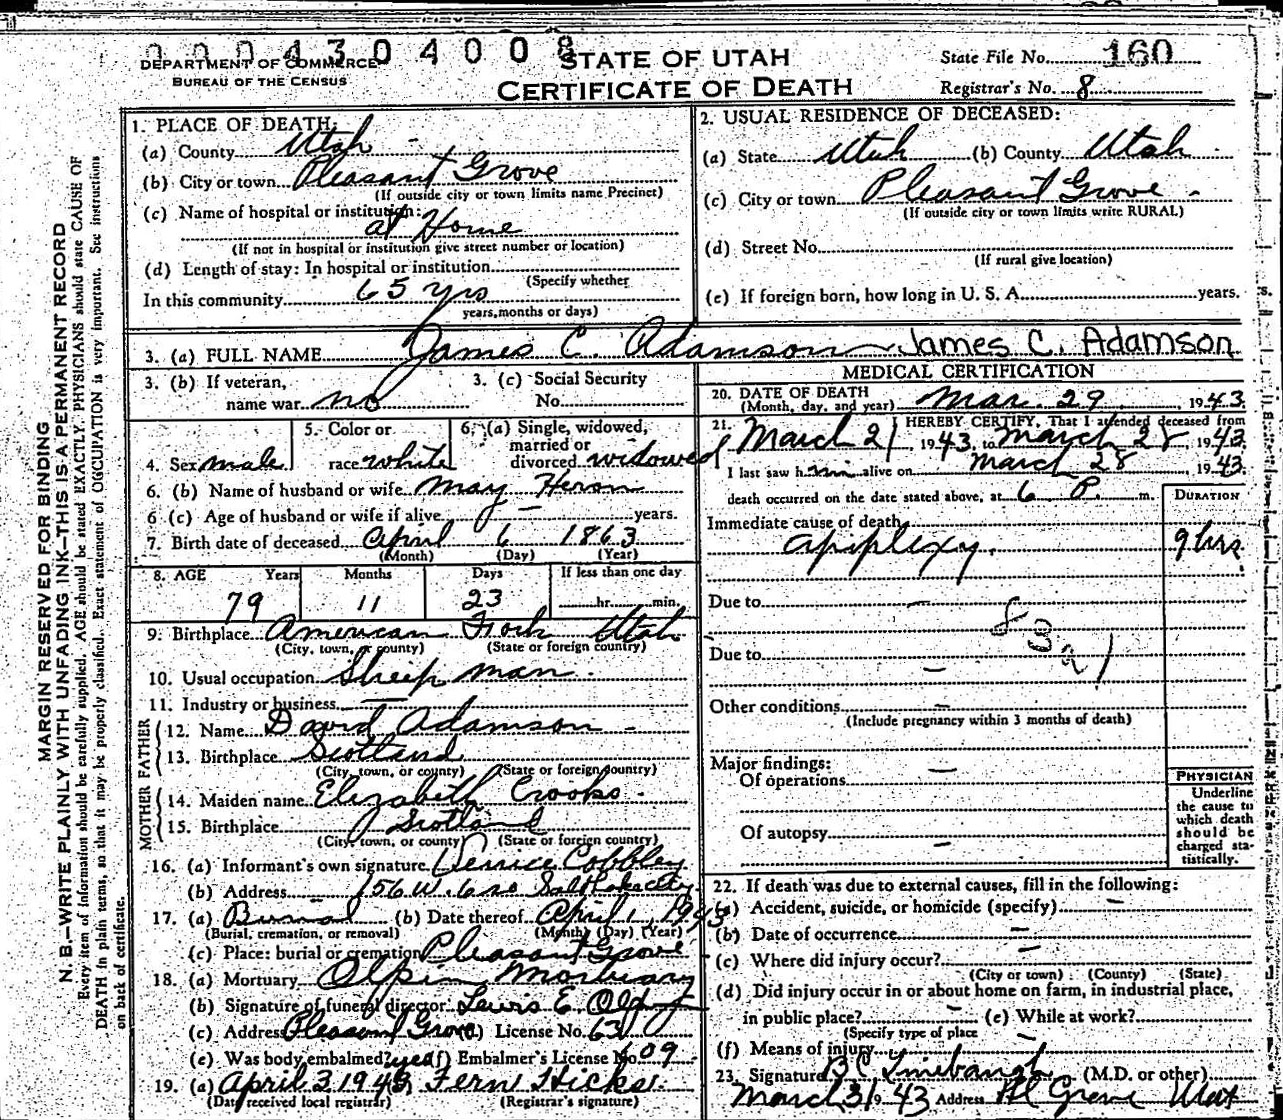 00043040008
DEPARTMENT OF COMMERCE
BUREAU OF THE CENSUS
STATE OF UTAH
CERTIFICATE OF DEATH
State File No. 160
Registrar's No. 8
MARGIN RESERVED FOR BINDING
N. B.—WRITE PLAINLY WITH UNFADING INK—THIS IS A PERMANENT RECORD
Every item of information should be carefully supplied. AGE should be stated EXACTLY. PHYSICIANS should state CAUSE OF
DEATH in plain terms, so that it may be properly classified. Exact statement of OCCUPATION is very important. See instructions
on back of certificate.
1. PLACE OF DEATH:
(a) County Utah
(b) City or town Pleasant Grove
(If outside city or town limits name Precinct)
(c) Name of hospital or institution:
at Home
(If not in hospital or institution give street number or location)
(d) Length of stay: In hospital or institution
(Specify whether
In this community 65 yrs
years, months or days)
2. USUAL RESIDENCE OF DECEASED:
(a) State Utah (b) County Utah
(c) City or town Pleasant Grove
(If outside city or town limits write RURAL)
(d) Street No.
(If rural give location)
(e) If foreign born, how long in U. S. A. years.
3. (a) FULL NAME James C. Adamson James C. Adamson
3. (b) If veteran,
name war no
3. (c) Social Security
No.
4. Sex male
5. Color or
race white
6. (a) Single, widowed,
married or
divorced widowed
6. (b) Name of husband or wife May Heron
6 (c) Age of husband or wife if alive — years.
7. Birth date of deceased April 6 1863
(Month) (Day) (Year)
8. AGE Years Months Days If less than one day
79 11 23 hr. min.
9. Birthplace American Fork Utah
(City, town, or county) (State or foreign country)
10. Usual occupation Sheep man
11. Industry or business —
FATHER
12. Name David Adamson
13. Birthplace Scotland
(City, town, or county) (State or foreign country)
MOTHER
14. Maiden name Elizabeth Crooks
15. Birthplace Scotland
(City, town, or county) (State or foreign country)
16. (a) Informant's own signature Cobbley
(b) Address 156 W. 6 so Salt Lake City
17. (a) Burial (b) Date thereof April 1, 1943
(Burial, cremation, or removal) (Month) (Day) (Year)
(c) Place: burial or cremation Pleasant Grove
18. (a) Mortuary Olpin Mortuary
(b) Signature of funeral director Lewis E
(c) Address Pleasant Grove (d) License No. 63
(e) Was body embalmed? yes (f) Embalmer's License No 09
19. (a) April 3 1943, Fern Hicks
(Date received local registrar) (Registrar's signature)
MEDICAL CERTIFICATION
20. DATE OF DEATH
(Month, day, and year) Mar 29, 1943
21. I HEREBY CERTIFY, That I attended deceased from
March 21 1943, to March 28, 1943
I last saw him alive on March 28, 1943
death occurred on the date stated above, at 6 P. m.
DURATION
Immediate cause of death
apoplexy. 9 hrs
Due to —
83 a 1
Due to —
Other conditions —
(Include pregnancy within 3 months of death)
Major findings:
Of operations —
Of autopsy —
PHYSICIAN
Underline
the cause to
which death
should be
charged sta-
tistically.
22. If death was due to external causes, fill in the following:
(a) Accident, suicide, or homicide (specify) —
(b) Date of occurrence —
(c) Where did injury occur? —
(City or town) (County) (State)
(d) Did injury occur in or about home on farm, in industrial place,
in public place? — (e) While at work?
(Specify type of place
(f) Means of injury —
23. Signature (M.D. or other)
March 31 1943 Address Pl Grove Utah